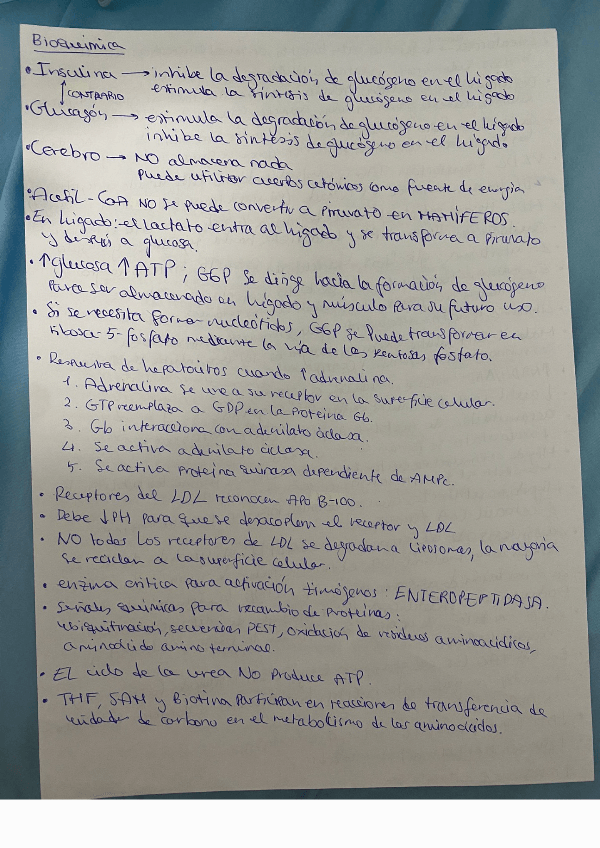 Bioquímica
• Insulina → inhibe la degradación de glucógeno en el hígado
estimula la síntesis de glucógeno en el hígado
↕ CONTRARIO
• Glucagón → estimula la degradación de glucógeno en el hígado
inhibe la síntesis de glucógeno en el hígado
• Cerebro → NO almacena nada
Puede utilizar cuerpos cetónicos como fuente de energía
• Acetil-CoA NO se puede convertir a Piruvato en MAMÍFEROS.
• En hígado: el lactato entra al hígado y se transforma a Piruvato
y después a glucosa.
• ↑glucosa ↑ATP ; G6P se dirige hacia la formación de glucógeno
para ser almacenado en hígado y músculo para su futuro uso.
• Si se necesita formar nucleótidos, G6P se puede transformar en
ribosa-5-fosfato mediante la vía de las pentosas fosfato.
• Respuesta de hepatocitos cuando ↑adrenalina.
1. Adrenalina se une a su receptor en la superficie celular.
2. GTP reemplaza a GDP en la Proteína Gb.
3. Gb interacciona con adenilato ciclasa.
4. Se activa adenilato ciclasa.
5. Se activa proteína quinasa dependiente de AMPc.
• Receptores del LDL reconocen APO B-100.
• Debe ↓PH para que se desacoplen el receptor y LDL
• NO todos los receptores de LDL se degradan a liposomas, la mayoría
se reciclan a la superficie celular.
• enzima crítica para activación zimógenos : ENTEROPEPTIDASA.
• Señales químicas para recambio de proteínas:
ubiquitinación, secuencias PEST, oxidación de residuos aminoacídicos,
aminoácido amino terminal.
• EL ciclo de la urea NO Produce ATP.
• THF, SAM y Biotina Participan en reacciones de transferencia de
unidades de carbono en el metabolismo de los aminoácidos.